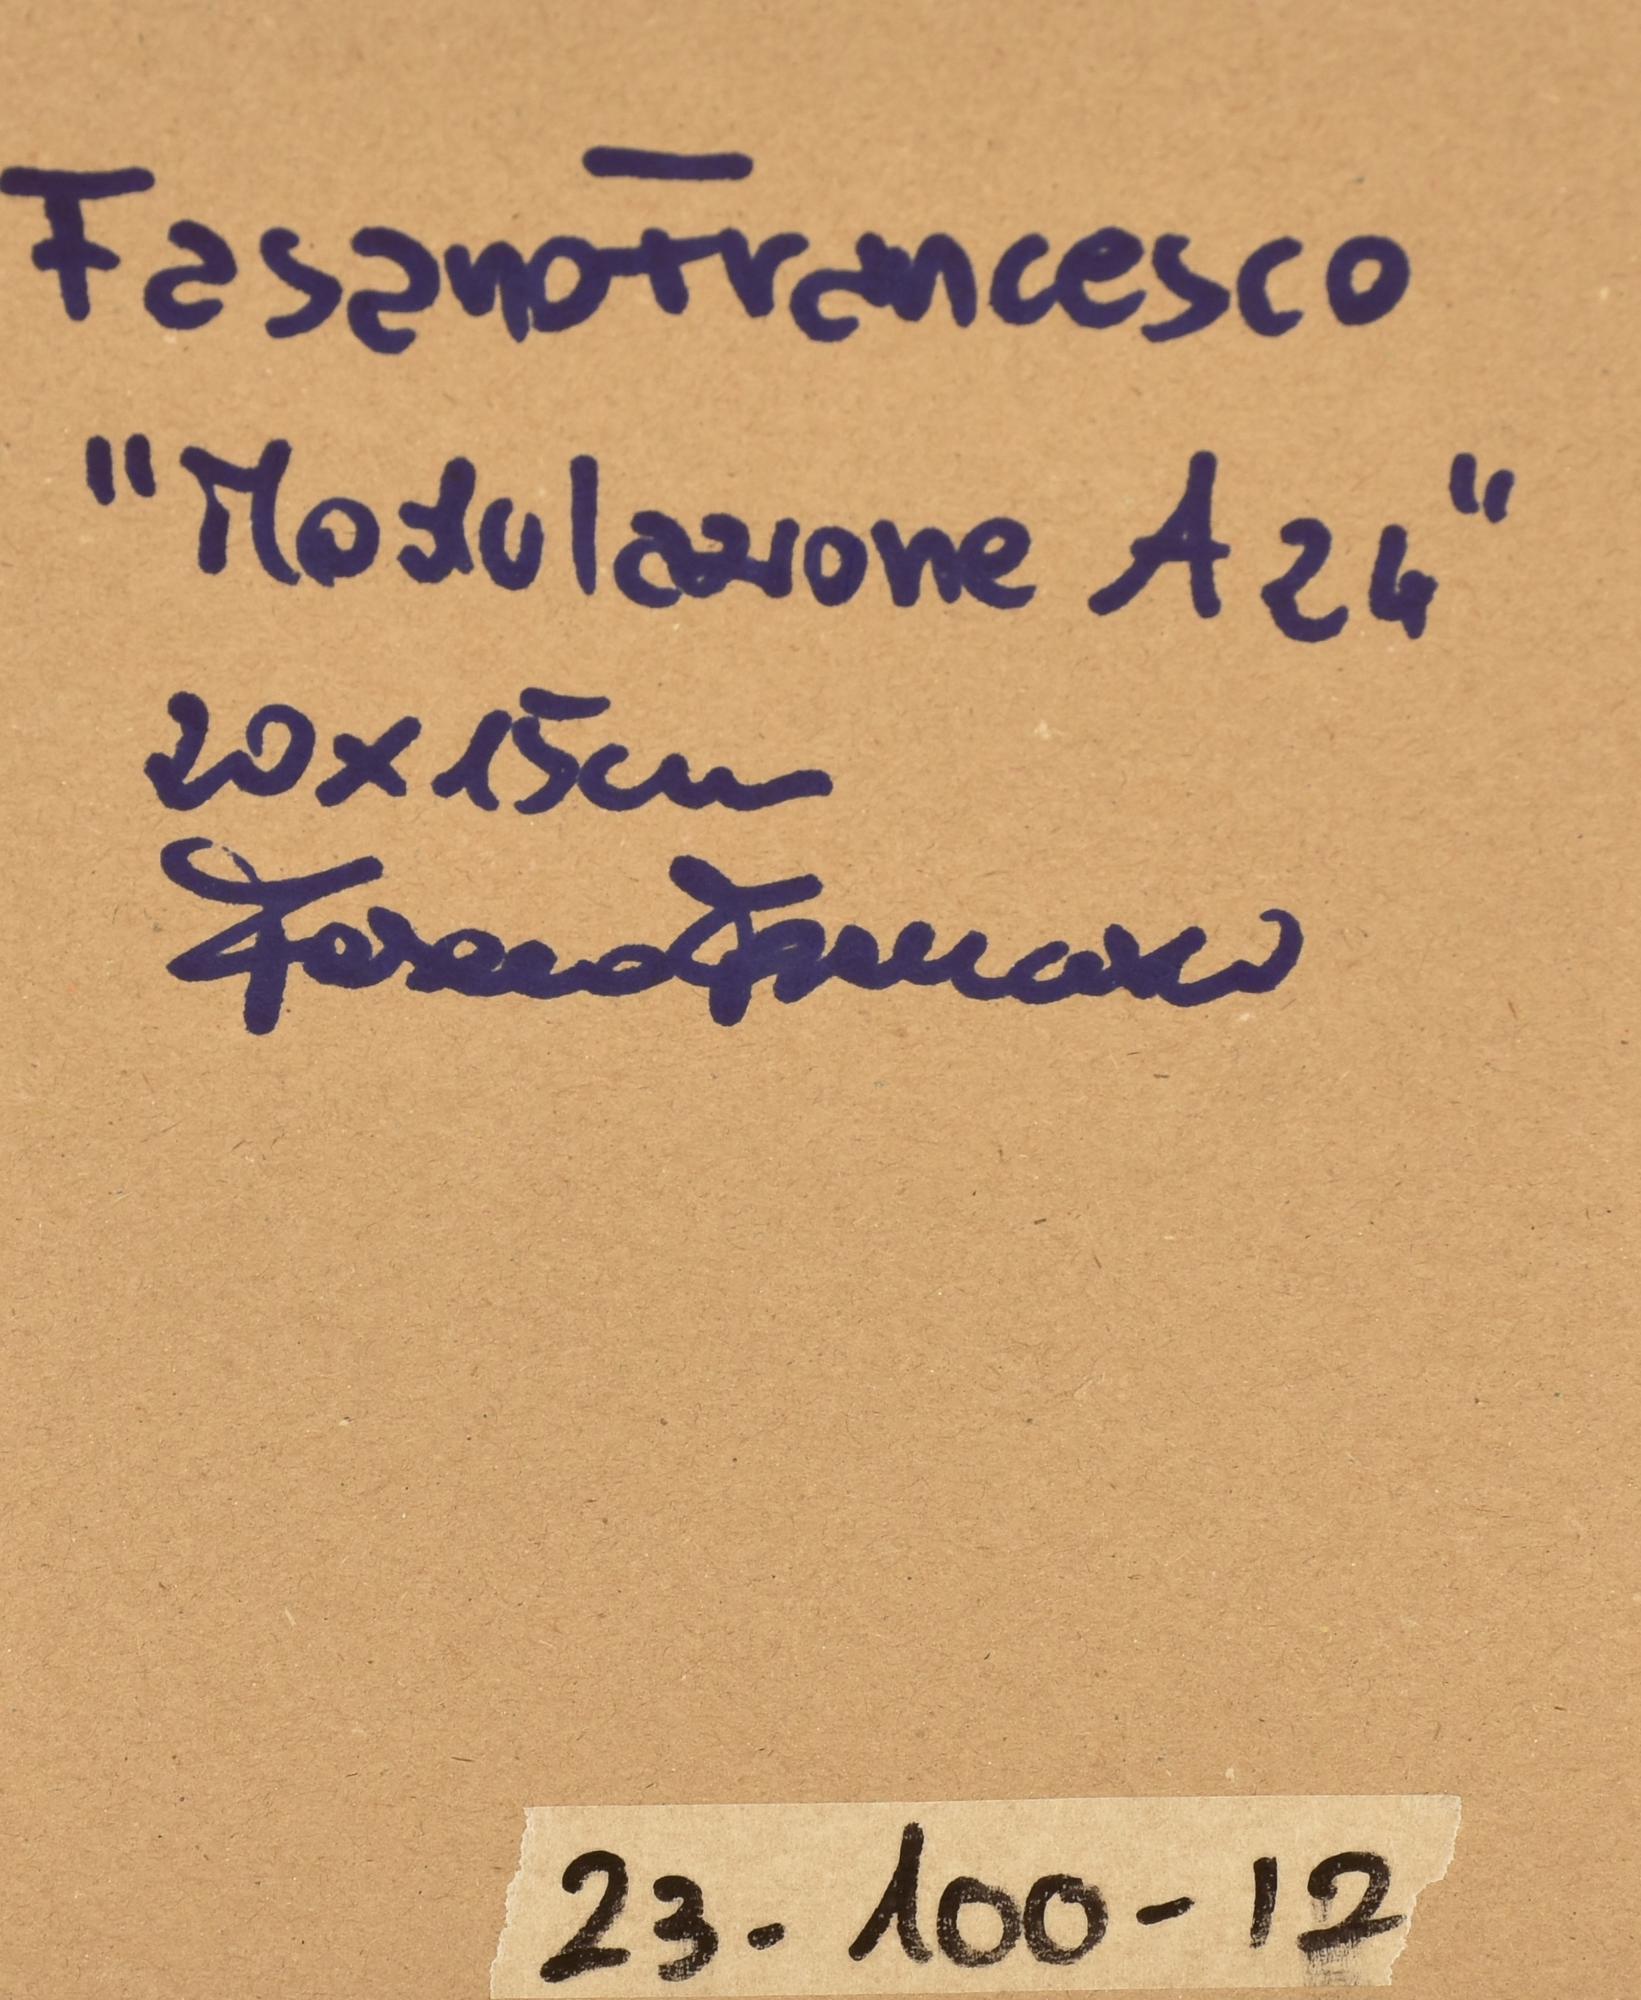 Fasano Francesco
"Modulazione A24"
20x15cm
Fasano Francesco
23-100-12